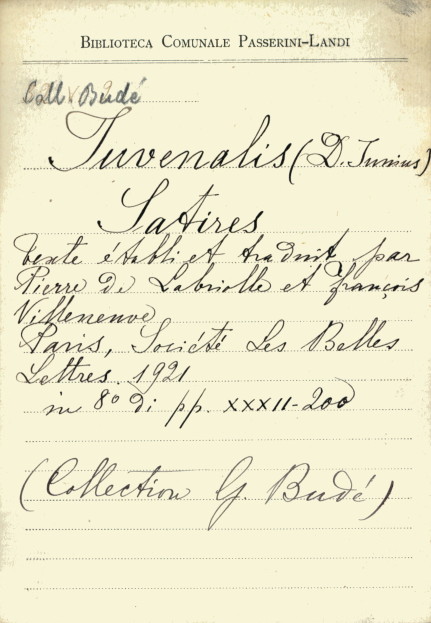 BIBLIOTECA COMUNALE PASSERINI-LANDI
Coll. Budé
Juvenalis (D. Junius)
Satires
texte établi et traduit par
Pierre de Labriolle et François
Villeneuve
Paris, Société Les Belles
Lettres. 1921
in 8° di pp. XXXII-200
(Collection G. Budé)